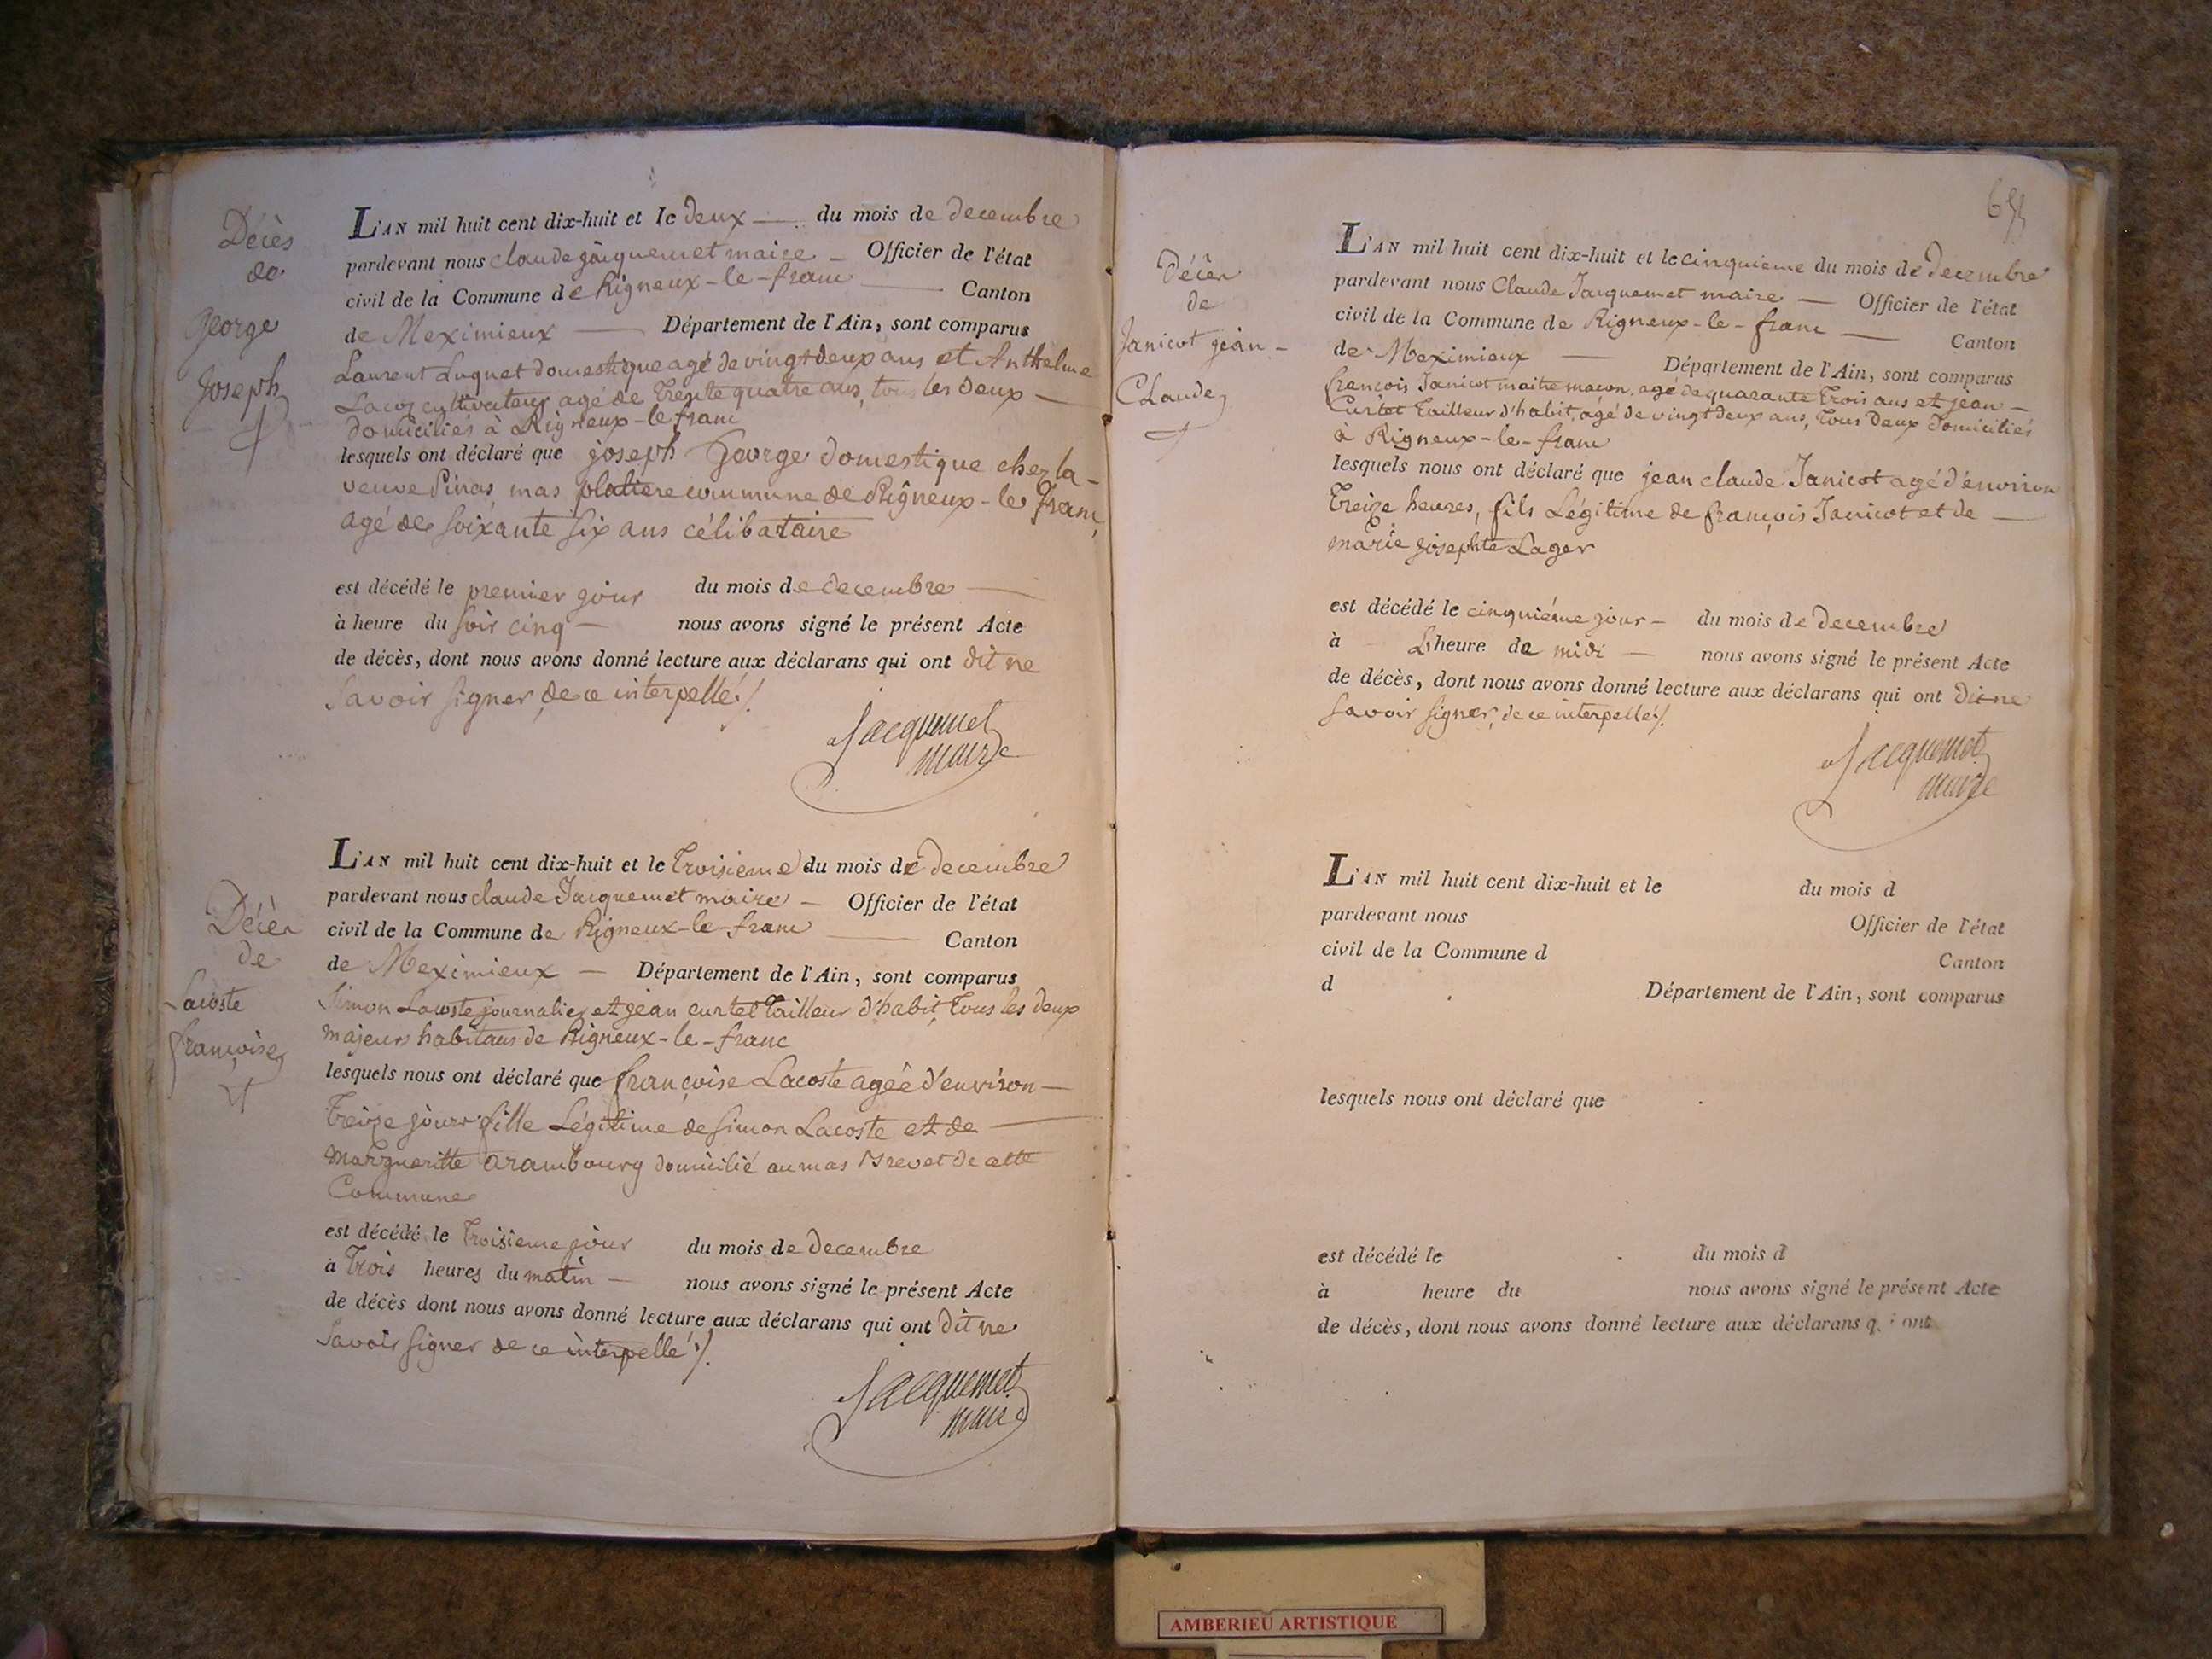 Décès
de
George
Joseph
L'AN mil huit cent dix-huit et le deux du mois de decembre
pardevant nous claude jacquemet maire Officier de l'état
civil de la Commune de Rigneux-le-franc Canton
de Meximieux Département de l'Ain, sont comparus
Laurent Luquet domestique agé de vingt deux ans et Anthelme
cultivateur agé de Trente quatre ans, tous les deux
domiciliés à Rigneux-le franc
lesquels ont déclaré que joseph George domestique chez la
veuve mas platiere commune de Rigneux-le franc,
agé de soixante six ans célibataire
est décédé le premier jour du mois de decembre
à heure du soir cinq nous avons signé le présent Acte
de décès, dont nous avons donné lecture aux déclarans qui ont dit ne
savoir signer, de ce interpellé ./.
Jacquemet
maire
Décès
de
Lacoste
françoise
L'AN mil huit cent dix-huit et le Troisieme du mois de decembre
pardevant nous claude Jacquemet maire Officier de l'état
civil de la Commune de Rigneux-le-franc Canton
de Meximieux Département de l'Ain, sont comparus
Simon Lacoste journalier et jean curtet Tailleur d'habit, Tous les deux
majeurs habitans de Rigneux-le-franc
lesquels nous ont déclaré que françoise Lacoste agée d'environ
Treize jours fille Légitime de Simon Lacoste et de
Margueritte arambourg domicilié au mas Brevet de cette
Commune
est décédé le Troisieme jour du mois de decembre
à Trois heures du matin nous avons signé le présent Acte
de décès dont nous avons donné lecture aux déclarans qui ont dit ne
Savoir signer de ce interpellé ./.
Jacquemet
maire
Décès
de
Janicot jean
Claude
L'AN mil huit cent dix-huit et le cinquieme du mois de Decembre
pardevant nous Claude Jacquemet maire Officier de l'état
civil de la Commune de Rigneux-le-franc Canton
de Meximieux Département de l'Ain, sont comparus
françois Janicot maitre maçon, agé de quarante Trois ans et jean
Curtet Tailleur d'habit, agé de vingt deux ans, Tous deux Domiciliés
à Rigneux-le-franc
lesquels nous ont déclaré que jean claude Janicot agé d'environ
Treize heures, fils Légitime de françois Janicot et de
marie josephte Lager
est décédé le cinquiéme jour du mois de decembre
à heure de midi nous avons signé le présent Acte
de décès, dont nous avons donné lecture aux déclarans qui ont dit ne
savoir signer, de ce interpellé ./.
Jacquemet
maire
L'AN mil huit cent dix-huit et le du mois d
pardevant nous Officier de l'état
civil de la Commune d Canton
d Département de l'Ain, sont comparus
lesquels nous ont déclaré que
est décédé le du mois d
à heure du nous avons signé le présent Acte
de décès, dont nous avons donné lecture aux déclarans qui ont
AMBERIEU ARTISTIQUE